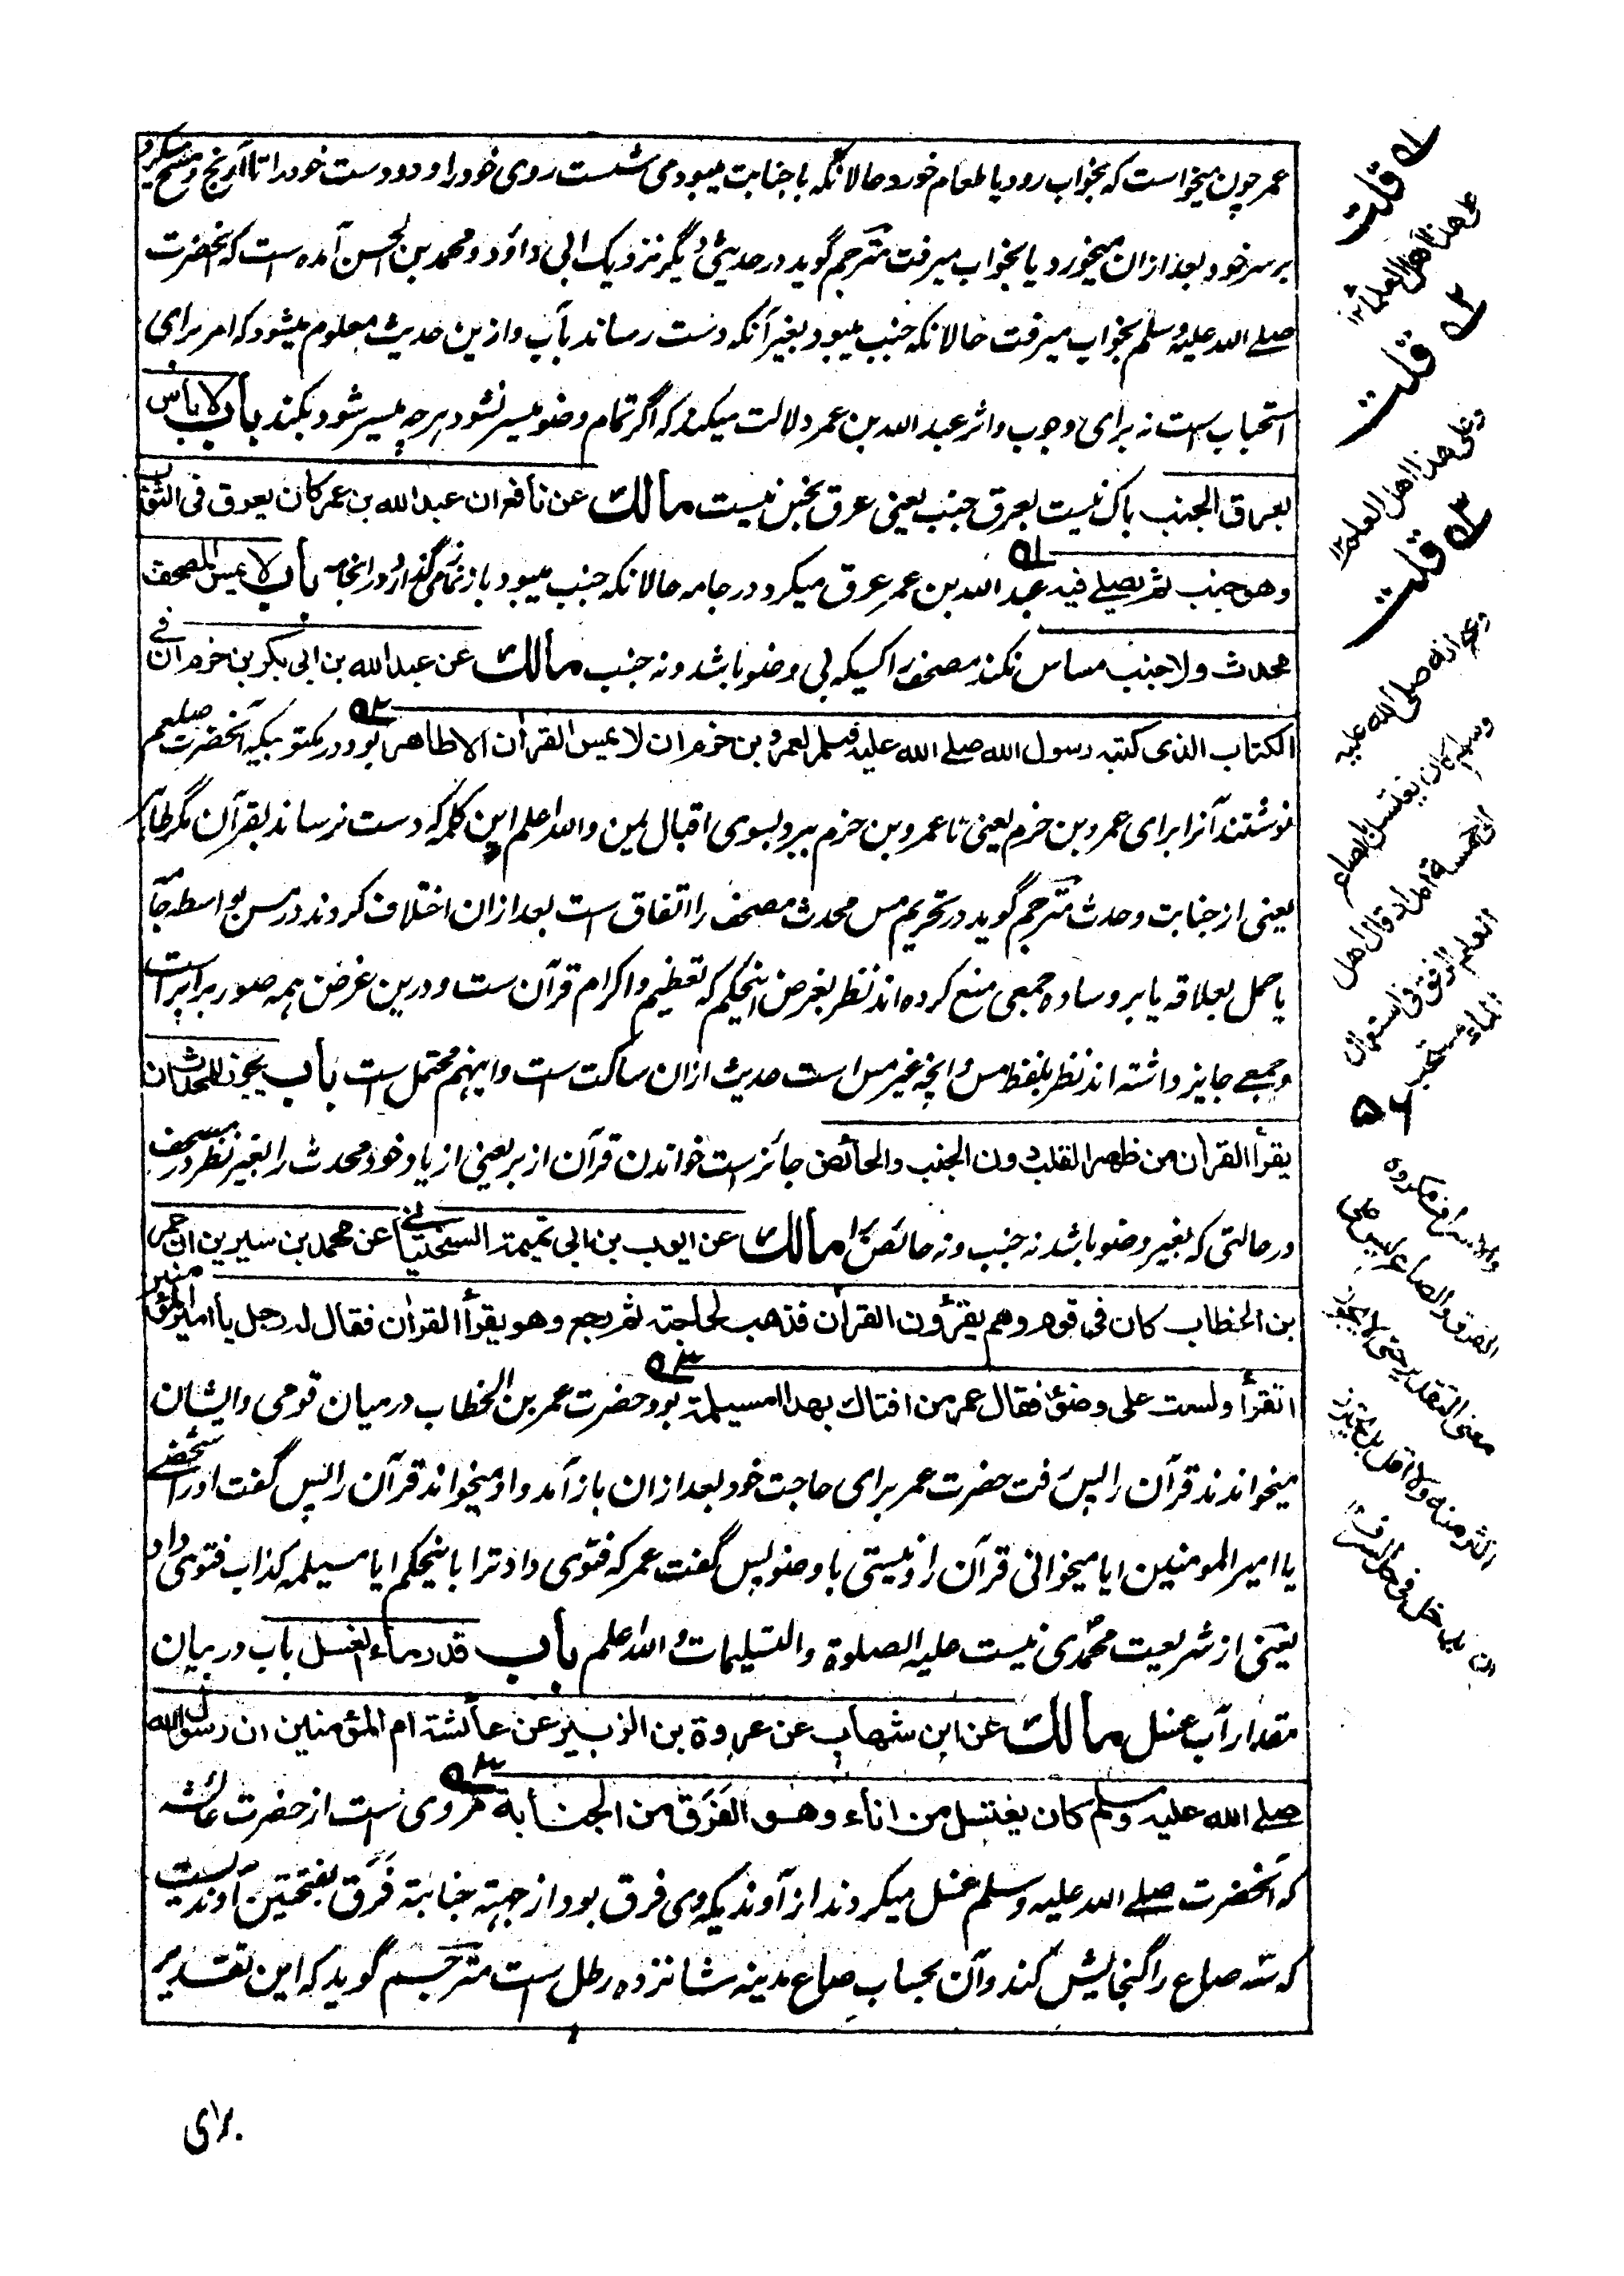 عمر چون میخواست که بخواب رود یا طعام خورد حالانکه با جنابت میبود می شست روی خود را و دو دست خود را تا آرنج و مسح میکرد
بر سر خود بعد ازان میخورد یا بخواب میرفت مترجم گوید در حدیثی دیگر نزدیک ابی داؤد و محمد بن الحسن آمده است که آنحضرت
صلے اللہ علیه وسلم بخواب میرفت حالانکه جنب میبود بغیر آنکه دست رساند بآب و ازین حدیث معلوم میشود که امر برای
استحباب است نه برای وجوب و اثر عبد اللہ بن عمر دلالت میکند که اگر تمام وضو میسر نشود هرچه میسر شود بکند باب لا باس
بعرق الجنب باک نیست بعرق جنب یعنی عرق نجس نیست مالك عن نافع ان عبد الله بن عمر كان يعرق فى الثوب
وهو جنب ثم يصلے فيه عبد اللہ بن عمر عرق میکرد در جامه حالانکه جنب میبود باز نماز می گذارد در انجامه باب لا يمس المصحف
محدث ولا جنب مساس نکند مصحف را کسیکه بی وضو باشد و نه جنب مالك عن عبد الله بن ابى بكر بن حزم ان فے
الكتاب الذى كتبه رسول الله صلے الله عليه وسلم لعمرو بن حزم ان لا يمس القرأن الا طاهر بود در مکتوبیکه آنحضرت صلعم
نوشتند آنرا برای عمرو بن حزم یعنی تا عمرو بن حزم ببرد بسوی اقبال یمن واللہ اعلم این کلمه که دست نرساند بقرآن مگر طاهر
یعنی از جنابت و حدث مترجم گوید در تحریم مس محدث مصحف را اتفاق است بعد ازان اختلاف کردند در مس بواسطه جامه
یا حمل بعلاقه یا بر وساده جمعی منع کرده اند نظر بغرض اینحکم که تعظیم و اکرام قرآن ست و درین غرض همه صور برابر است
و جمعے جایز داشته اند نظر بلفظ مس و انچه غیر مس است حدیث ازان ساکت ست و اینهم محتمل است باب يجوز للمحدث ان
يقرأ القرأن من ظهر القلب دون الجنب والحائض جائز ست خواندن قرآن از بر یعنی از یاد خود محدث را بغیر نظر در مصحف
در حالتی که بغیر وضو باشد نه جنب و نه حائض را مالك عن ايوب بن ابى تميمة السختيانے عن محمد بن سيرين ان عمر
بن الخطاب كان فى قوم وهم يقرؤن القرأن فذهب لحاجته ثم رجع وهو يقرأ القرأن فقال له رجل يا امير المؤمنين
اتقرأ ولست على وضوء فقال عمر من افتاك بهذا امسيلمة بود حضرت عمر بن الخطاب درمیان قومی و ایشان
میخواندند قرآن را پس رفت حضرت عمر برای حاجت خود بعد ازان باز آمد و او میخواند قرآن را پس گفت او را شخصے
یا امیر المومنین ایا میخوانی قرآن را و نیستی با وضو پس گفت عمر که فتوی داد ترا باینحکم ایا مسیلمه کذاب فتوی داد
یعنی از شریعت محمدی نیست علیه الصلوة والتسلیمات واللہ اعلم باب قدر ماء الغسل باب در بیان
مقدار آب غسل مالك عن ابن شهاب عن عروة بن الزبير عن عائشة ام المؤمنين ان رسول الله
صلے الله عليه وسلم كان يغتسل من اناء وهو الفرق من الجنابة مروی ست از حضرت عائشه
که آنحضرت صلے اللہ علیه وسلم غسل میکردند از آوندیکه وی فرق بود از جهته جنابة فرق بفتحتین آوندیست
که سه صاع را گنجایش کند و آن بحساب صاع مدینه شانزده رطل ست مترجم گوید که این تقدیر
برای
قلت
على هذا اهل العلم ١٢
قلت
وعلى هذا اهل العلم ١٢
قلت
وصح انه صلى الله عليه
وسلم كان يغتسل بالصاع
الى خمسة امداد قال اهل
العلم الرفق فى استعمال
الماء مستحب
والاسراف مكروه
الفرق والصاع ليس على
معنى التقدير حتى لا يجوز
اكثر منه ولا اقل بل يجوز
ان يدخل فى حد السرف ١٢